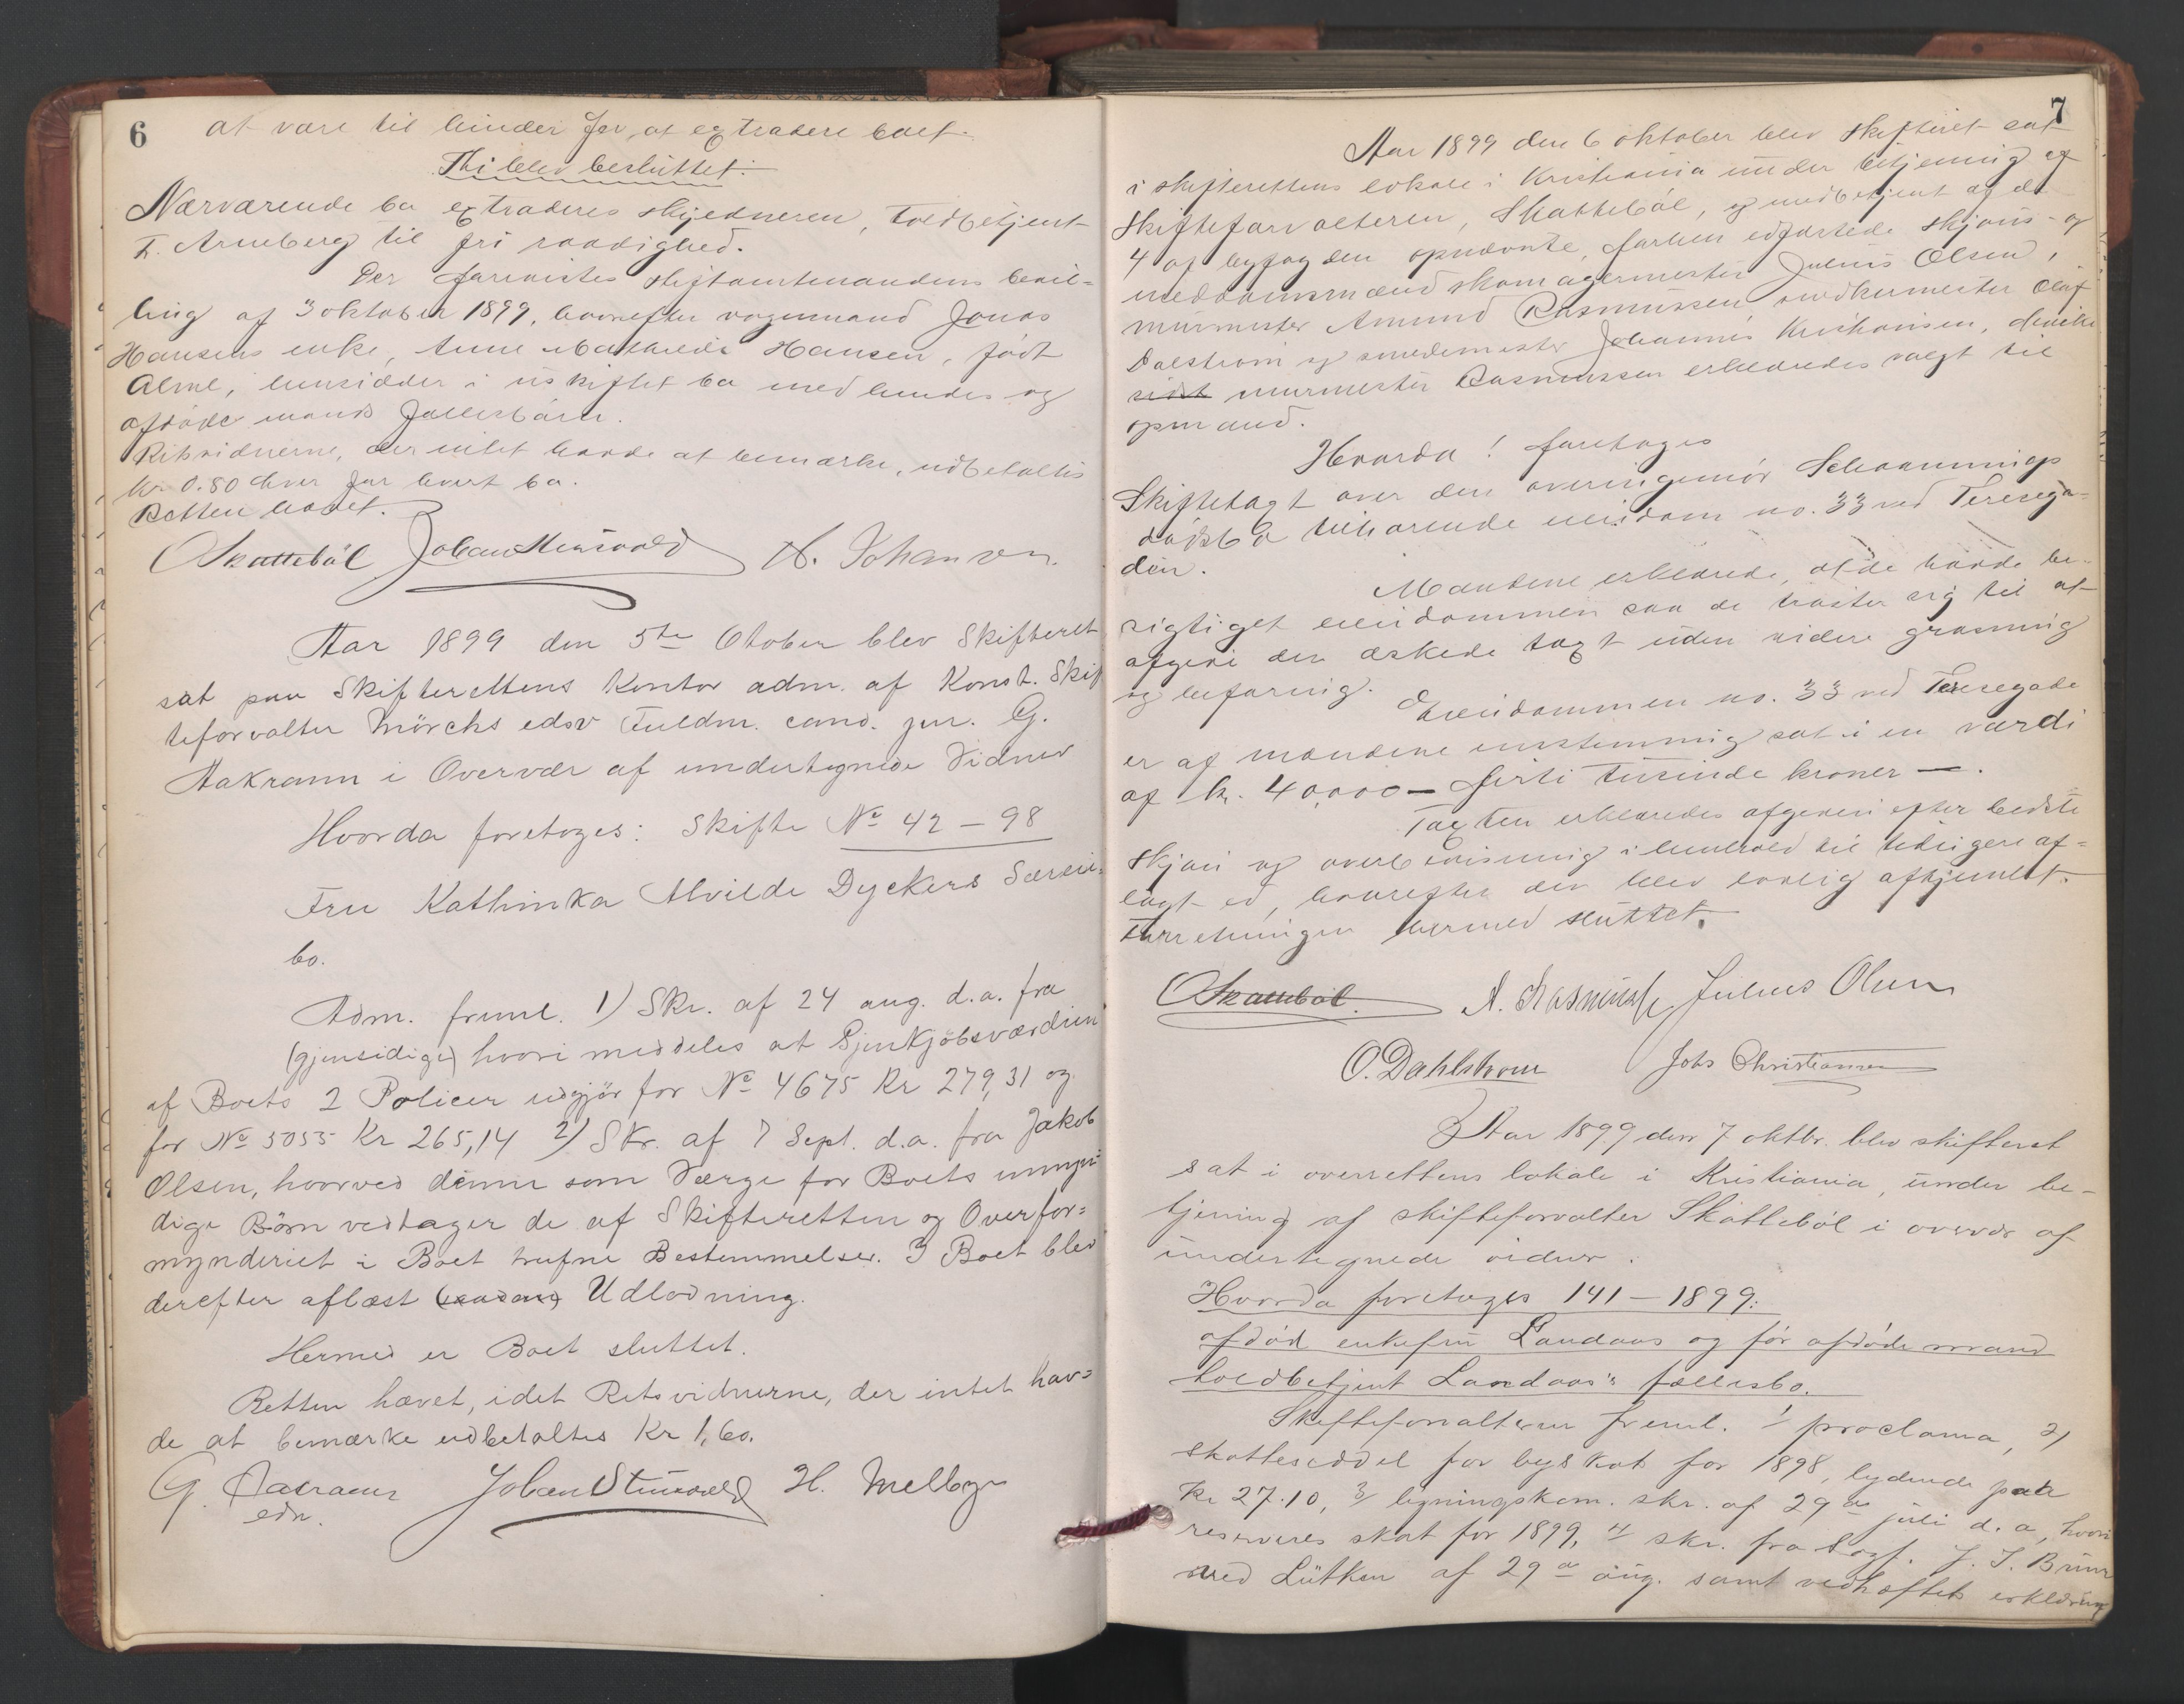 6
at være til hinder for at extradere boet.
Thi blev besluttet:
Nærværende bo extraderes skjødneren, toldbetjent
T. Arneberg til fri raadighed.
Der forevistes stiftamtmandens bevil=
ling af 3 oktober 1899, hvorefter vognmand Jonas
Hansens enke, Anne Mathilde Hansen, født
Alme, hensidder i uskiftet bo med hendes og
afdøde mands fællesbørn.
Retsvidnerne, der intet havde at bemærke, udbetaltes
kr 0.80 hver for hvert bo.
Retten hævet.
Skattebøl Johan Stensvold H. Johansen.
Aar 1899 den 5te Otober blev Skifteret
sat paa Skifterettens Kontor adm. af Konst. Skif
teforvalter Mörchs edsv Fuldm. cand. jur. G.
Aakrann i Overvær af undertegnede Vidner
Hvorda foretoges: Skifte No 42 – 98
Fru Kathinka Alvilde Dyckers Særeie=
bo.
Adm. freml. 1) Skr. af 24 aug. d.a. fra
(gjensidige) hvori meddeles at Gjenkjöbsværdien
af Boets 2 Policer udgjör for No 4675 Kr 279,31 og
for No 5055 Kr 265,14 2) Skr. af 7 Sept. d.a. fra Jakob
Olsen, hvorved denne som Værge for Boets umyn=
dige Börn vedtager de af Skifteretten og Overfor=
mynderiet i Boet trufne Bestemmelser. I Boet blev
derefter aflæst (saadan) Udlodning.
Hermed er Boet sluttet.
Retten hævet, idet Retsvidnerne, der intet hav=
de at bemærke udbetaltes Kr 1,60.
G. Aakrann Johan Stensvold H. Mellbye
edsv.
7
Aar 1899 den 6 oktober blev skifteret sat
i skifterettens lokale i Kristiania under betjening af
skifteforvalteren, Skattebøl, og medbetjent af de
4 af byfogden opnævnte, forhen edfæstede skjøns- og
meddomsmænd skomagermester Julius Olsen,
murmester Amund Rasmussen, snedkermester Olaf
Dalstrøm og smedemester Johannes Kristiansen, hvilke
sidst murmester Rasmussen erklæredes valgt til
opmand.
Hvorda! foretoges
Skiftetagt over den overingeniør Schwennings
dødsbo tilhørende eiendom no. 33 ved Teresega=
den.
Mændene erklærede, at de havde be=
sigtiget eiendommen saa de trøster sig til at
afgive den æskede taxt uden videre granskning
og befaring.
Eiendommen no. 33 ved Teresegade
er af mændene enstemmig sat i en værdi
af kr. 40,000 – firti tusinde kroner –.
Taxten erklæredes afgiven efter bedste
skjøn og overbevisning i henhold til tidligere af=
lagt ed, hvorefter den blev lovlig afhjemlet.
Forretningen hermed sluttet.
Skattebøl. A. Rasmussen Julius Olsen
O. Dahlstrøm Johs Christiansen
Aar 1899 den 7 oktbr. blev skifteret
sat i overrettens lokale i Kristiania, under be-
tjening af skifteforvalter Skattebøl i overvær af
undertegnede vidner.
Hvorda foretoges 141 – 1899:
afdød enkefru Landaas og før afdøde mand
toldbetjent Landaas's fællesbo.
Skifteforvalteren freml. 1/ proclama, 2/
skatteseddel for byskat for 1898, lydende paa
Kr 27.10, 3/ ligningskom. skr. af 29de juli d.a., hvori
reserveres skat for 1899, 4/ skr. fra sagf. J. I. Bruun
med Lütken af 29de aug. samt vedhæftet erklæring